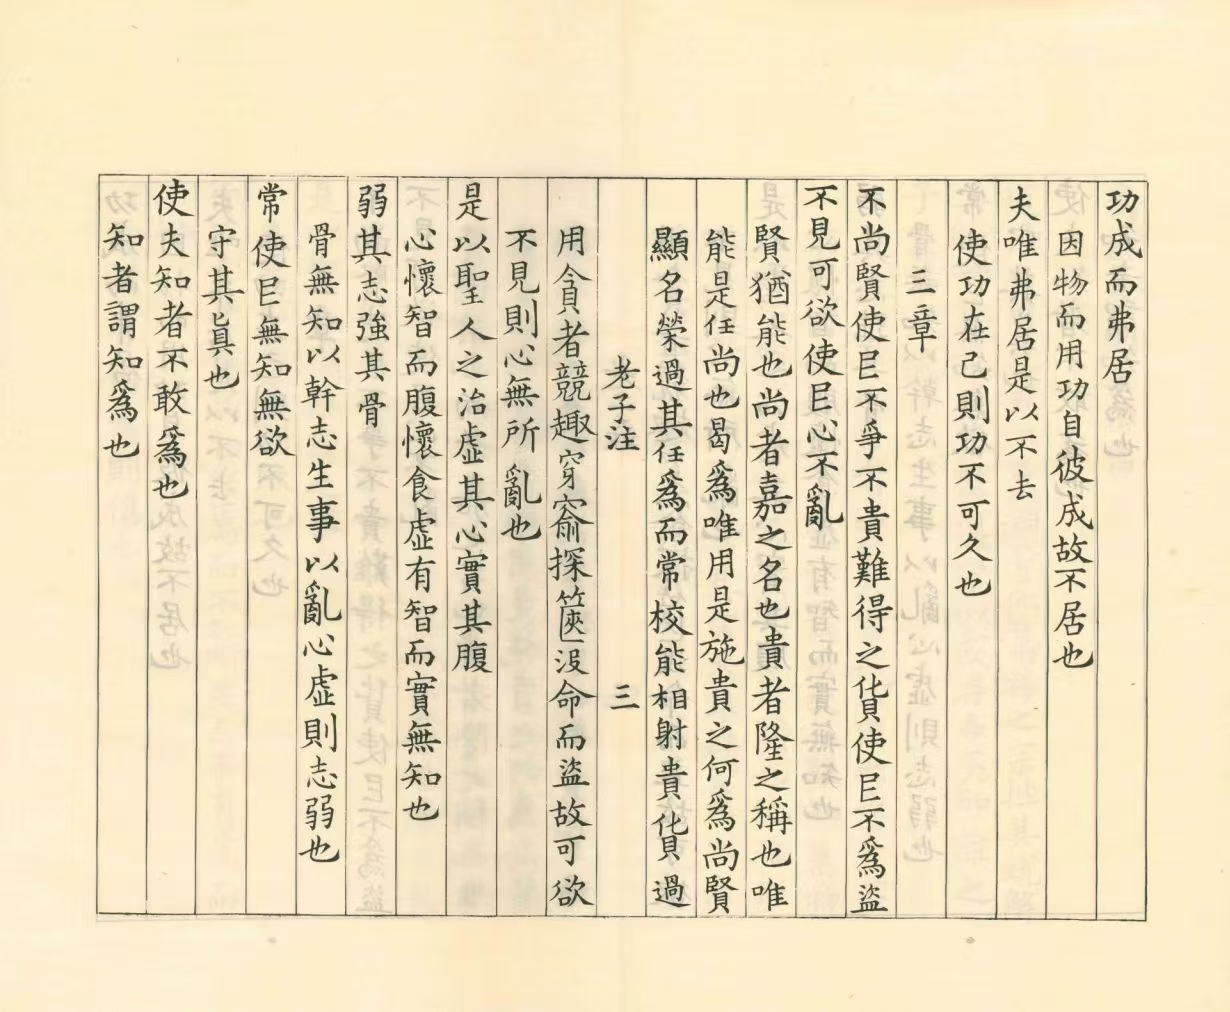 功成而弗居
因物而用功自彼成故不居也
夫唯弗居是以不去
使功在己則功不可久也
三章
不尚賢使民不爭不貴難得之貨使民不爲盜
不見可欲使民心不亂
賢猶能也尚者嘉之名也貴者隆之稱也唯
能是任尚也曷爲唯用是施貴之何爲尚賢
顯名榮過其任爲而常校能相射貴貨過
老子注
三
用貪者競趣穿窬探篋沒命而盜故可欲
不見則心無所亂也
是以聖人之治虛其心實其腹
心懷智而腹懷食虛有智而實無知也
弱其志強其骨
骨無知以幹志生事以亂心虛則志弱也
常使民無知無欲
守其眞也
使夫知者不敢爲也
知者謂知爲也